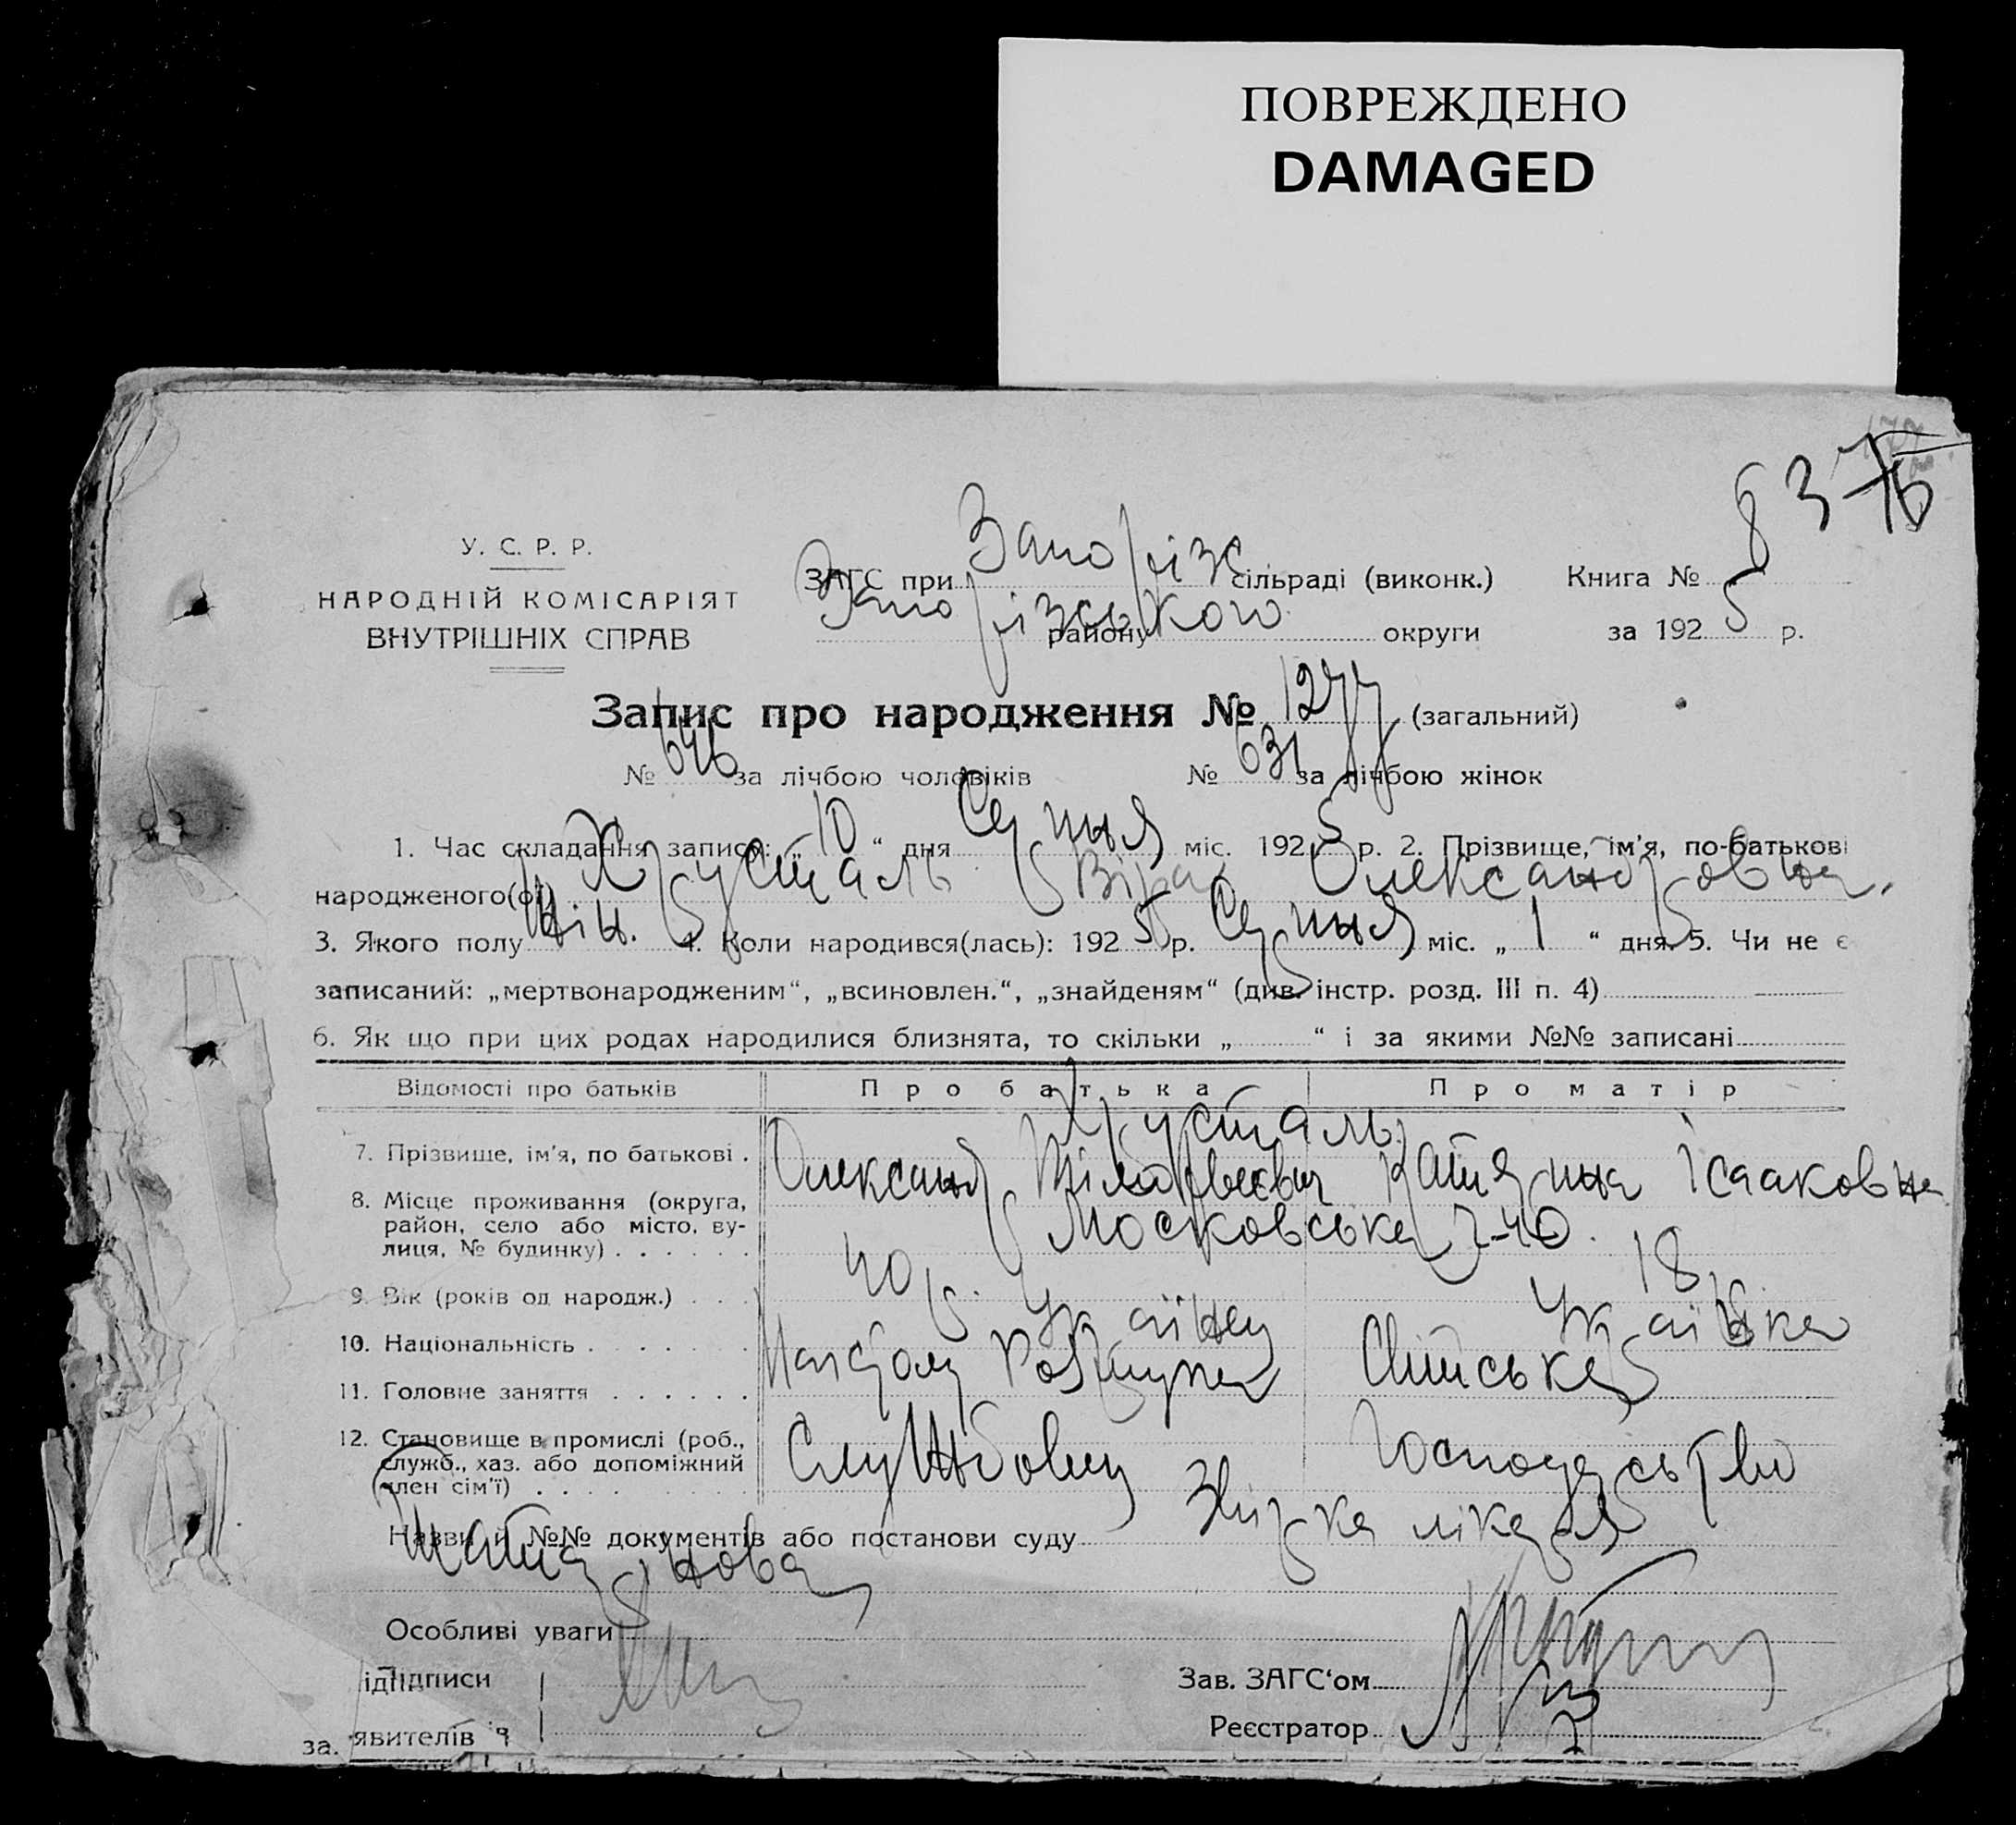 ПОВРЕЖДЕНО
DAMAGED
83 76
У. С. Р. Р.
НАРОДНІЙ КОМІСАРІЯТ
ВНУТРІШНІХ СПРАВ
ЗАГС при Запоріз сільраді (виконк.) Книга №
Запорізького району округи за 1925 р.
Запис про народження № 1277 (загальний)
№ 646 за лічбою чоловіків № 631 за лічбою жінок
1. Час складання запису: „10“ дня Серпня міс. 1925 р. 2. Прізвище, ім’я, по-батькові
народженого(ої) Хрусталь Віра Олександровна.
3. Якого полу жін. 4. Коли народився(лась): 1925 р. Серпня міс. „1“ дня. 5. Чи не є
записаний: „мертвонародженим“, „всиновлен.“, „знайденям“ (див. інстр. розд. III п. 4)
6. Як що при цих родах народилися близнята, то скільки „ “ і за якими №№ записані
Відомості про батьків Про батька Про матір
Хрусталь
7. Прізвище, ім’я, по батькові . Олександр Катярина Ісааковна
8. Місце проживання (округа, район, село або місто, вулиця, № будинку) . . . . . . Московська 7-40.
9. Вік (років од народж.) . . . 40 р. 18 р.
10. Національність . . . . . . . Українец Українка
11. Головне заняття . . . . . . Хатське
12. Становище в промислі (роб., служб., хаз. або допоміжний член сім’ї) . . . . Службовец Господарство
Назви й №№ документів або постанови суду лікаря
Особливі уваги
Підписи
Зав. ЗАГС‘ом
за. явителів
Реєстратор